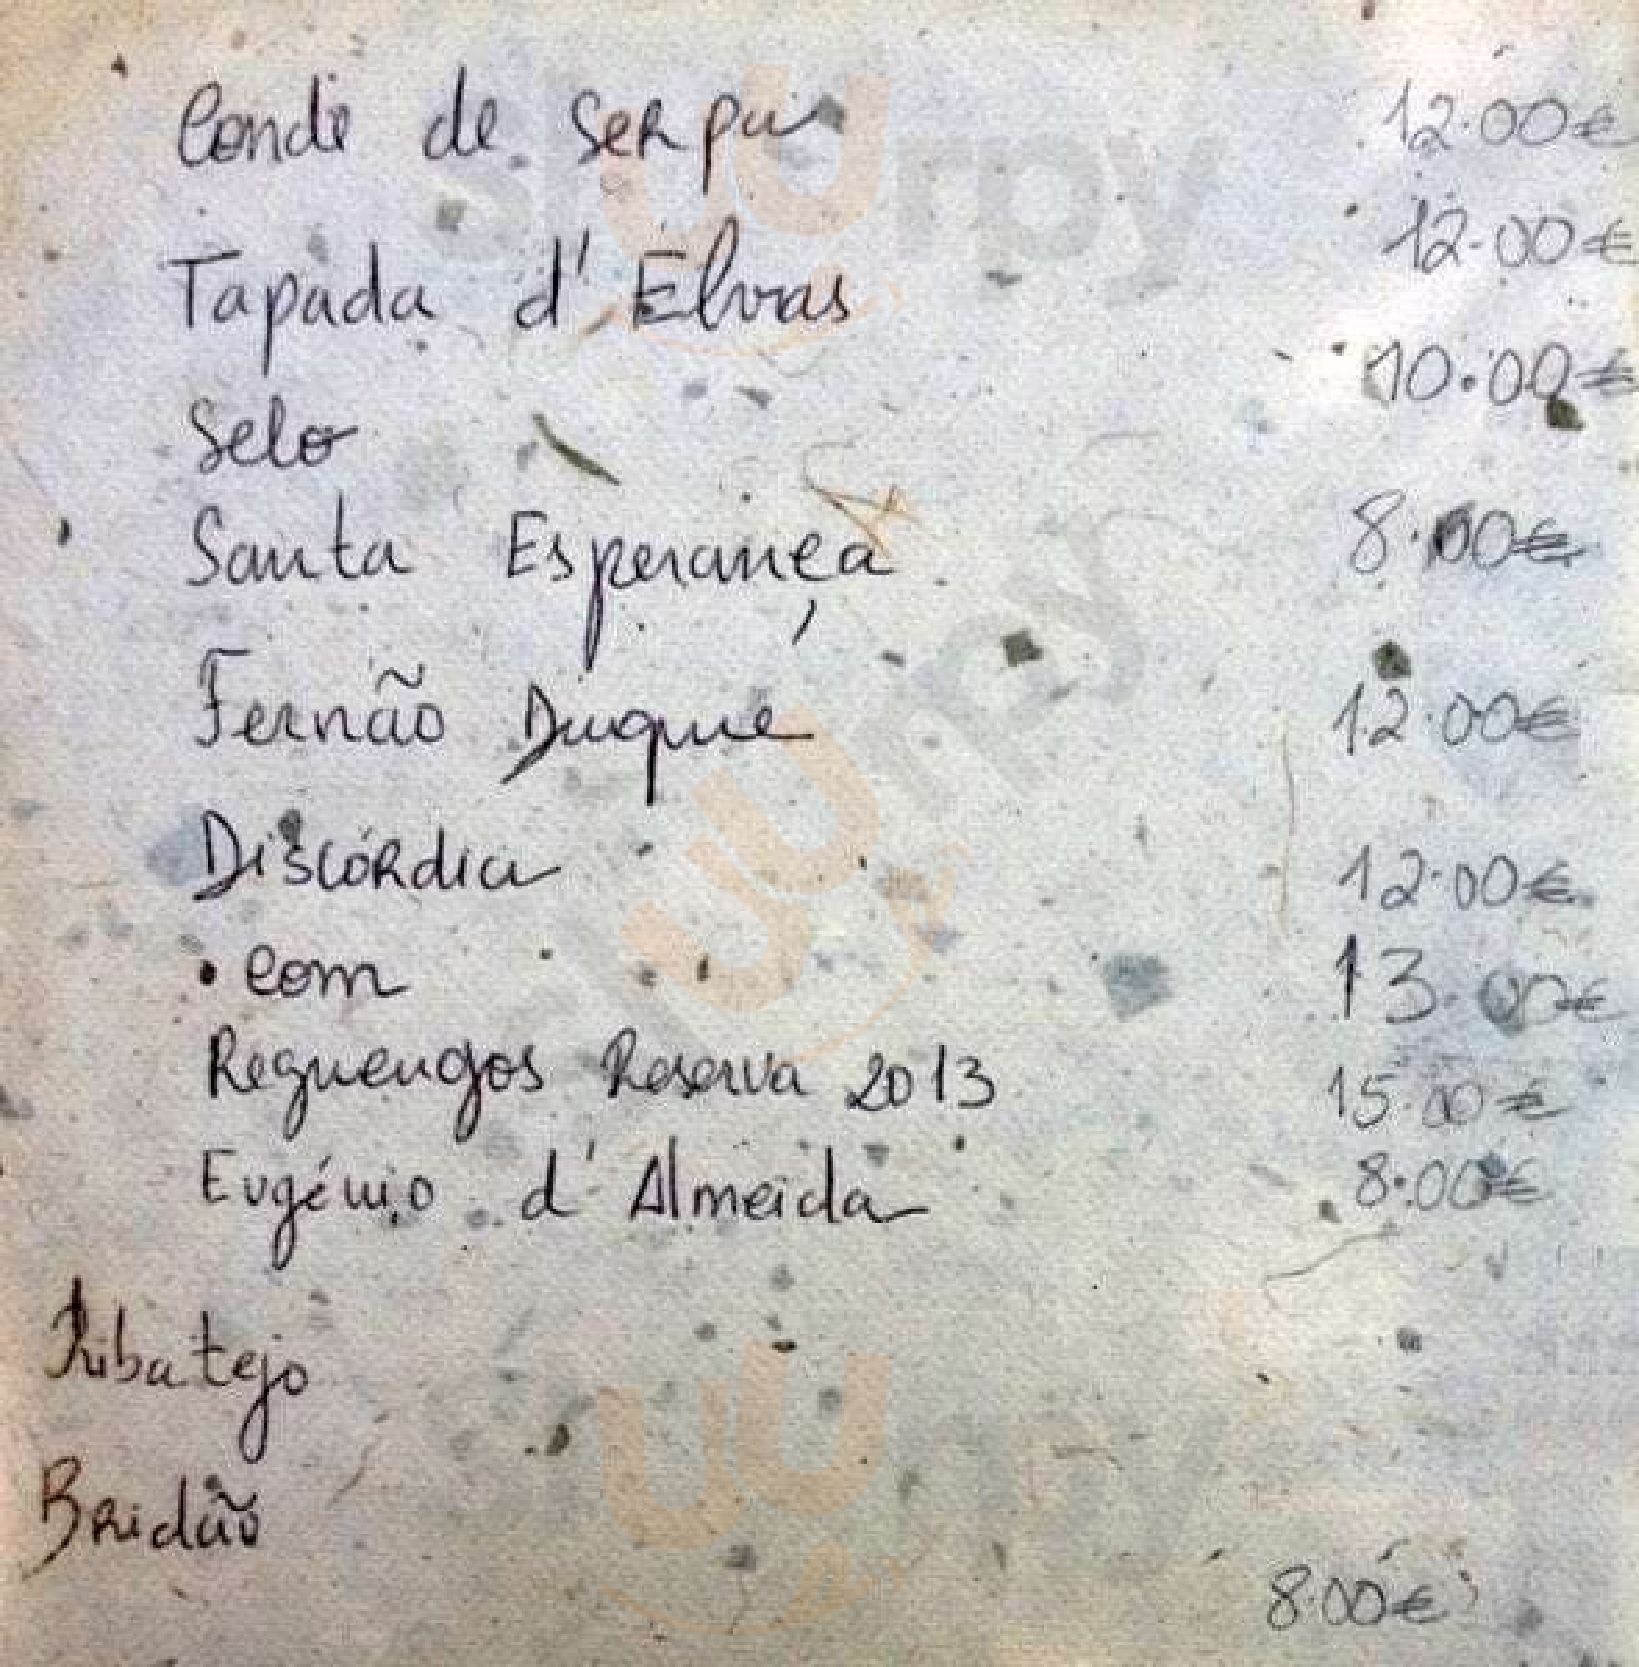 Conde de Serpa 12.00€
Tapada d'Elvas 12.00€
Selo 10.00€
Santa Esperança 8.00€
Fernão Duque 12.00€
Discórdia 12.00€
.com 13.00€
Reguengos Reserva 2013 15.00€
Eugénio d'Almeida 8.00€
Ribatejo
Bridão
8.00€